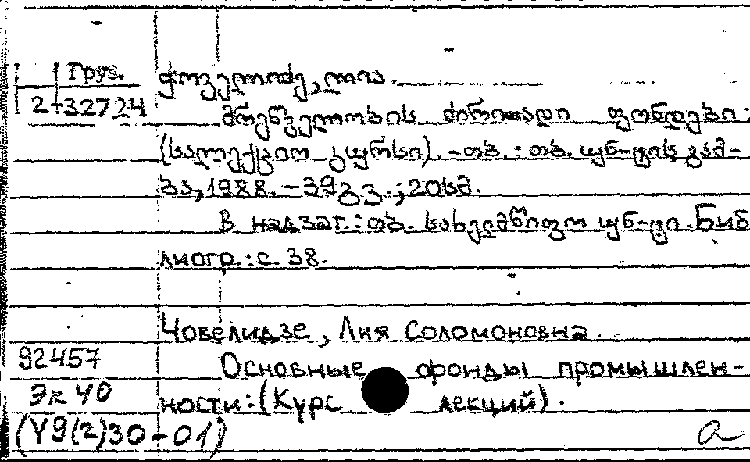 Груз.
2-32724
ჭოველიძე, ლია.
მრეწველობის ძირითადი ფონდები:
(სალექციო კურსი). - თბ.: თბ. უნ-ტის გამ-
ბა, 1988. - 39 გვ.; 20 სმ.
В надзаг.: თბ. სახელმწიფო უნ-ტი. Биб
лиогр.: с. 38.
Човелидзе, Лия Соломоновна.
92457
Основные фонды промышлен-
Эк 40
ности: (Курс лекций).
(У9(2)30-01)
a